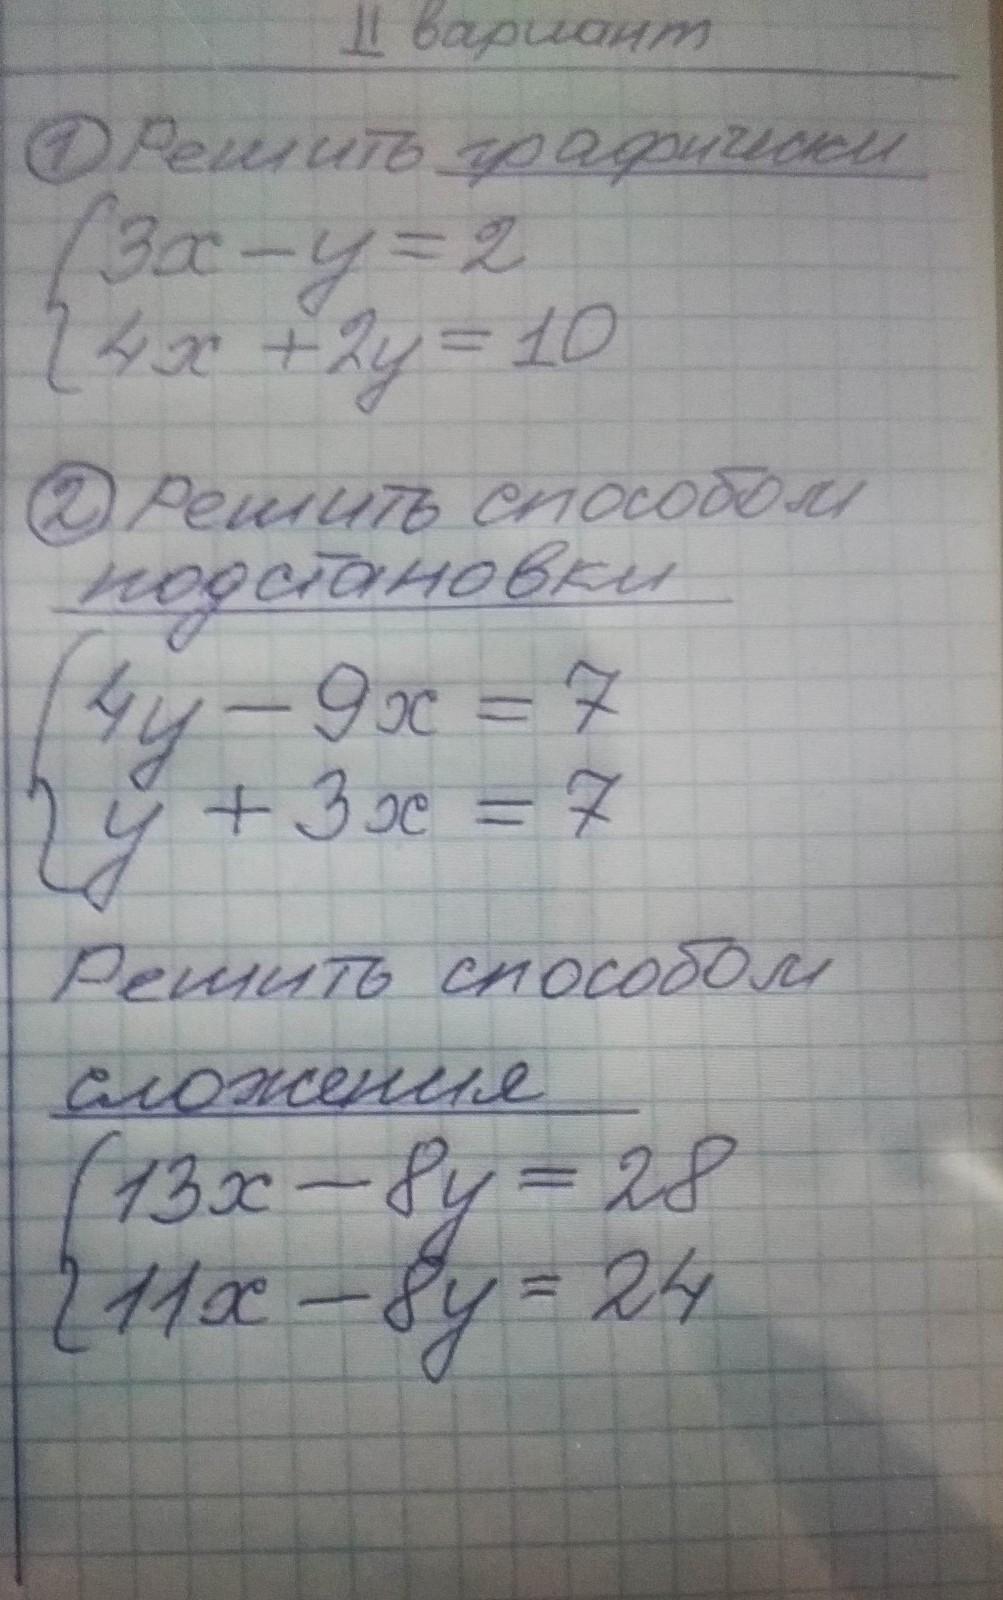 II вариант
① Решить графически
{3x - y = 2
4x + 2y = 10
② Решить способом
подстановки
{4y - 9x = 7
y + 3x = 7
Решить способом
сложения
{13x - 8y = 28
11x - 8y = 24